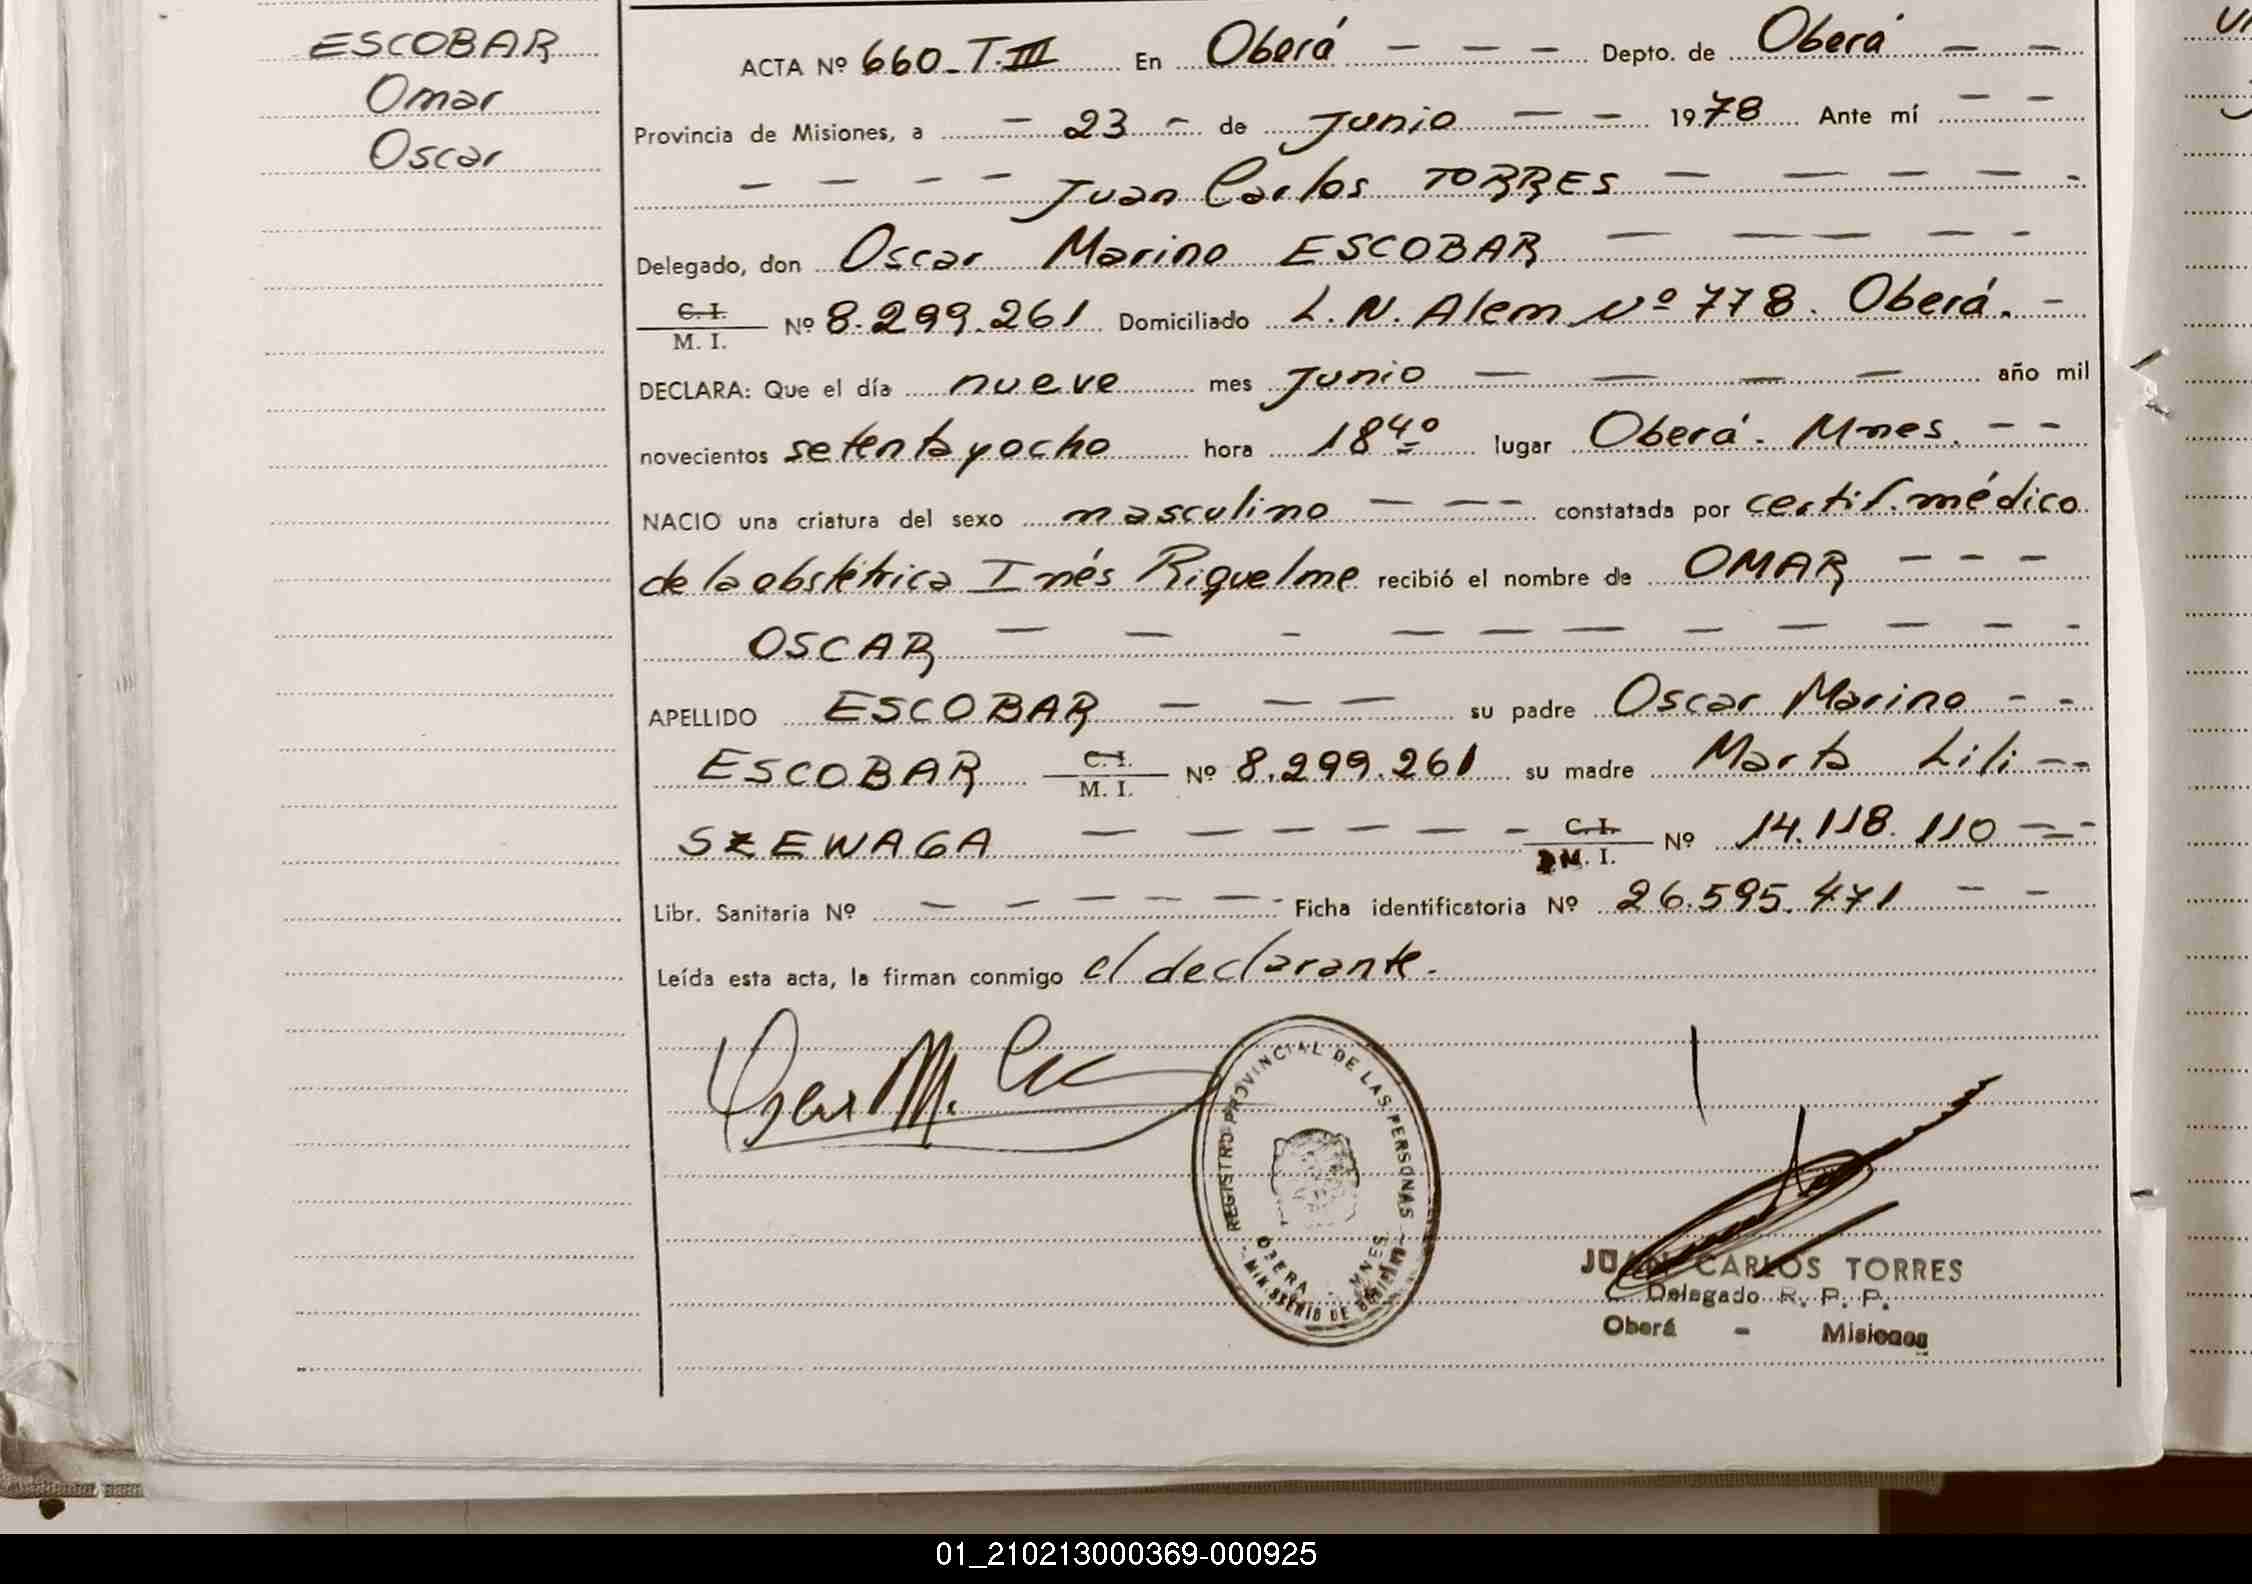 ESCOBAR
Omar
Oscar
ACTA Nº 660-T.III En Oberá - - - Depto. de Oberá - -
Provincia de Misiones, a - 23 - de Junio - - 1978 Ante mí - -
- - - - Juan Carlos TORRES - - - - - -
Delegado, don Oscar Marino ESCOBAR - - - - -
C. I.
M. I. Nº 8.299.261 Domiciliado L. N. Alem Nº 778. Oberá. -
DECLARA: Que el día nueve mes Junio - - - - año mil
novecientos setenta y ocho hora 18 40 lugar Oberá. Mnes. - -
NACIO una criatura del sexo masculino - - - constatada por certif. médico
de la obstétrica Inés Riquelme recibió el nombre de OMAR - - -
OSCAR - - - - - - - - - - -
APELLIDO ESCOBAR - - - su padre Oscar Marino - -
ESCOBAR C. I.
M. I. Nº 8.299.261 su madre Marta Lili - -
SZEWAGA - - - - - - C. I.
M. I. Nº 14.118.110 - - -
Libr. Sanitaria Nº - - - - - - Ficha identificatoria Nº 26.595.471 - -
Leída esta acta, la firman conmigo el declarante.
Oscar M.
REGISTRO PROVINCIAL DE LAS PERSONAS
OBERA - MNES.
MINISTERIO DE
JUAN CARLOS TORRES
Delegado R. P. P.
Oberá - Misiones
01_210213000369-000925